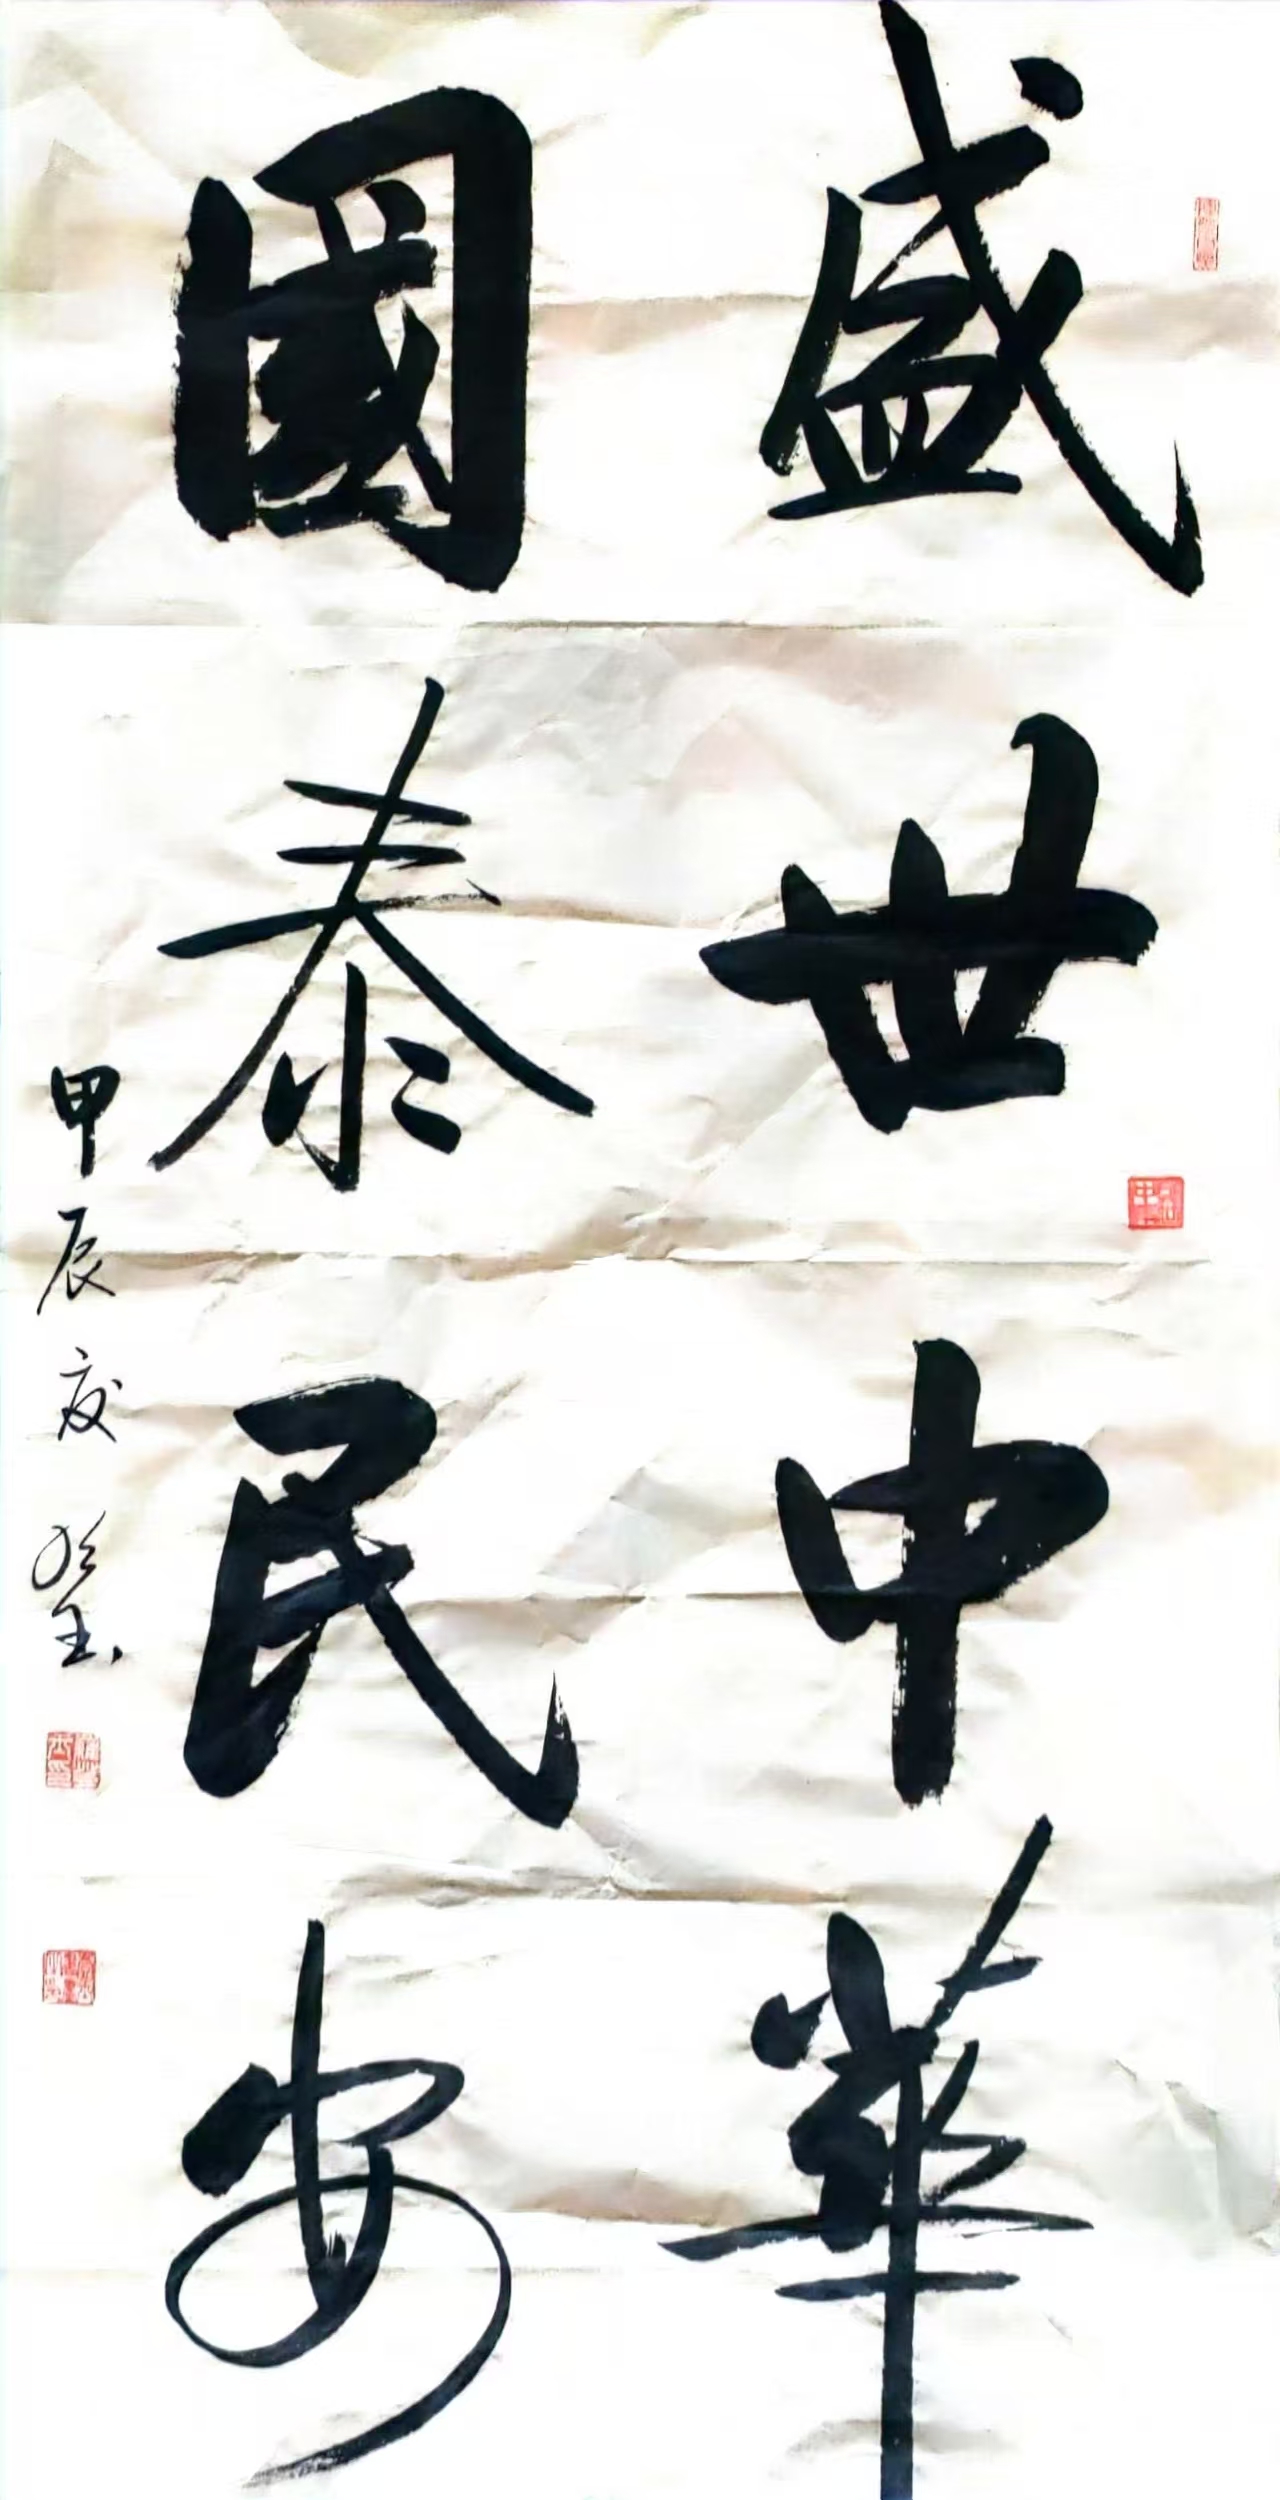 盛世中華
國泰民安
甲辰夏